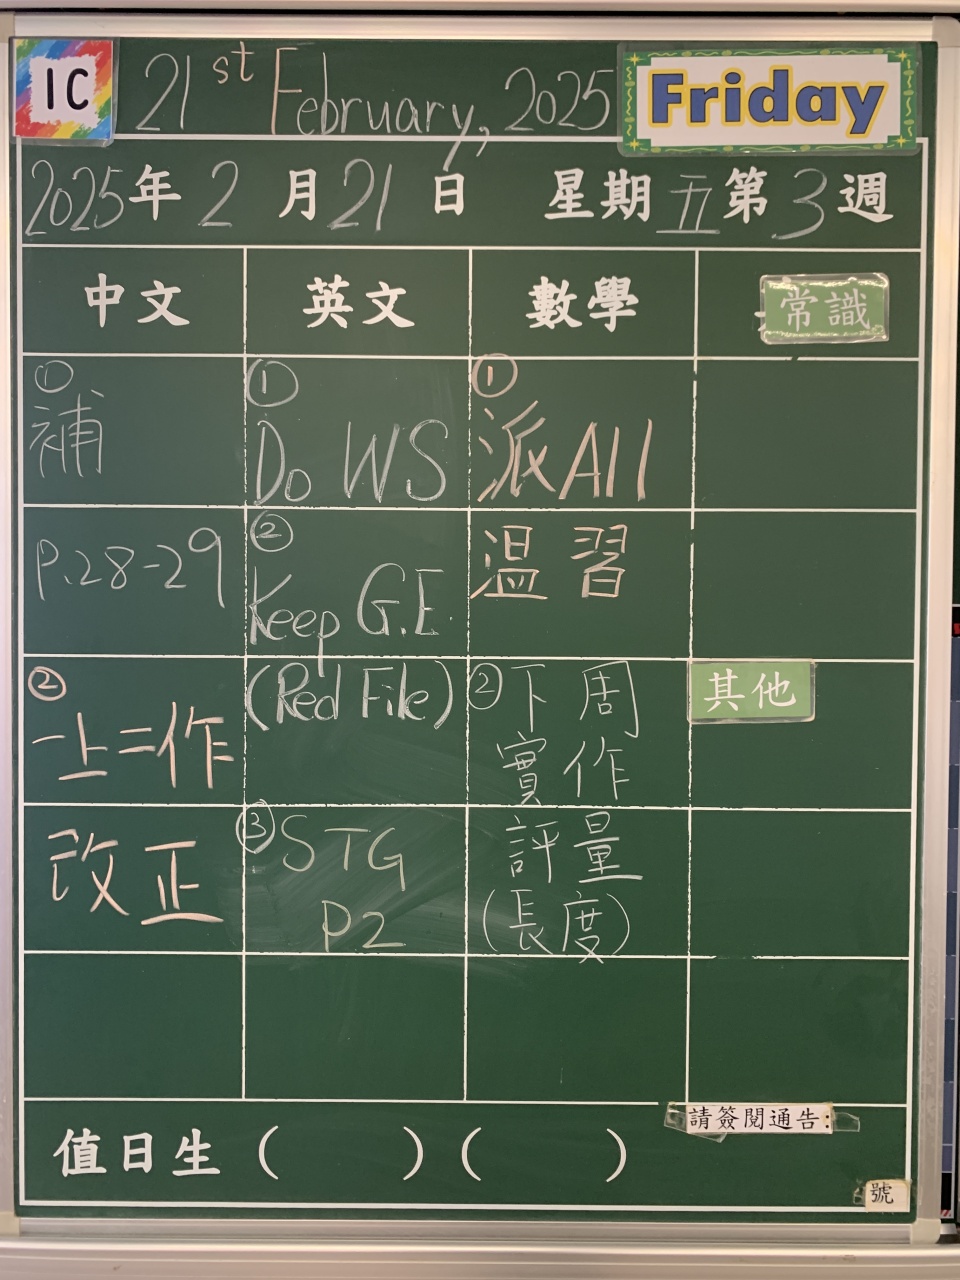 1C 21st February, 2025 Friday
2025年2月21日 星期五第3週
中文 英文 數學 常識
①
補
P.28-29
②
一上二作
改正
①
Do WS
②
Keep G.E.
(Red File)
③ STG
P2
①
派A11
溫習
② 下周
實作
評量
(長度)
其他
值日生 ( ) ( )
請簽閱通告:
號